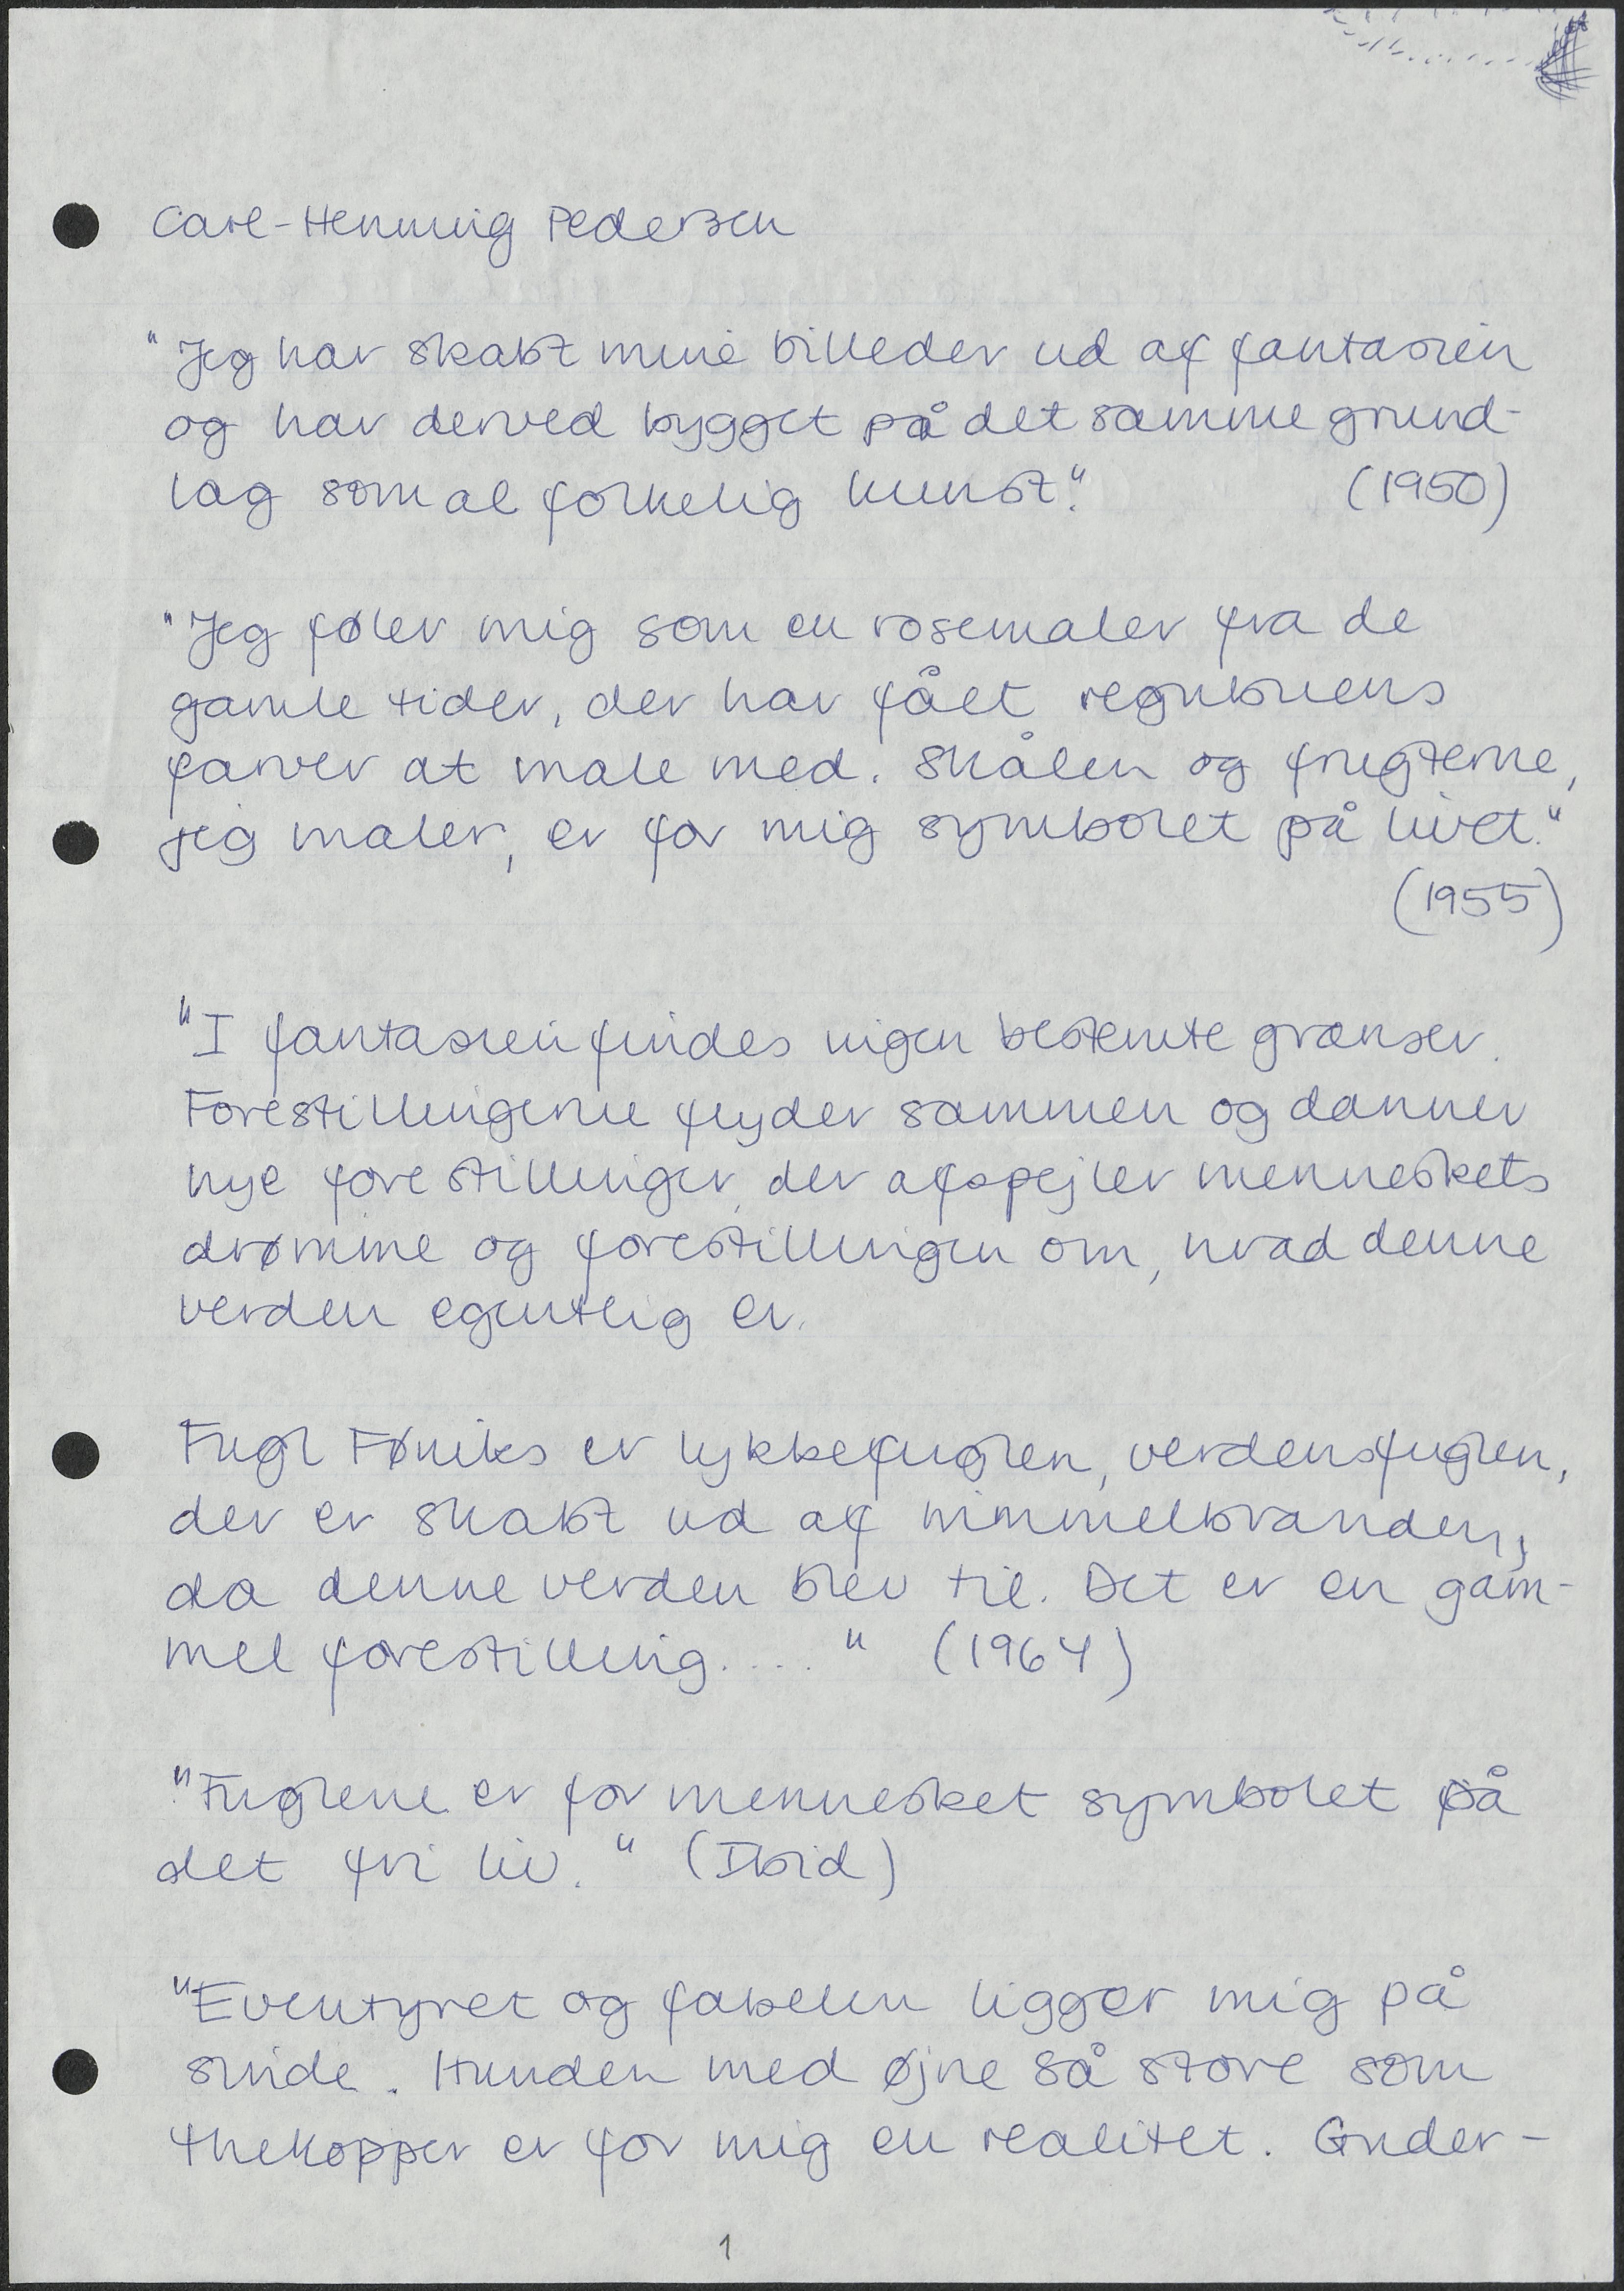 Carl-Henning Pedersen
"Jeg har skabt mine billeder ud af fantasien
og har derved bygget på det samme grund-
lag som al folkelig kunst."
(1950)
"Jeg føler mig som en rosemaler fra de
gamle tider, der har fået regnbuens
farver at male med. Skålen og frugterne,
jeg maler, er for mig symbolet på livet."
(1955)
"I fantasien findes ingen bestemte grænser.
Forestillingerne flyder sammen og danner
nye forestillinger, der afspejler menneskets
drømme og forestillingen om, hvad denne
verden egentlig er.
Fugl Føniks er lykkefuglen, verdensfuglen,
der er skabt ud af himmelbranden,
da denne verden blev til. Det er en gam-
mel forestilling...." (1964)
"Fuglene er for mennesket symbolet på
det fri liv." (Ibid)
"Eventyret og fabelen ligger mig på
sinde. Hunden med øjne så store som
thekopper er for mig en realitet. Guder-
1